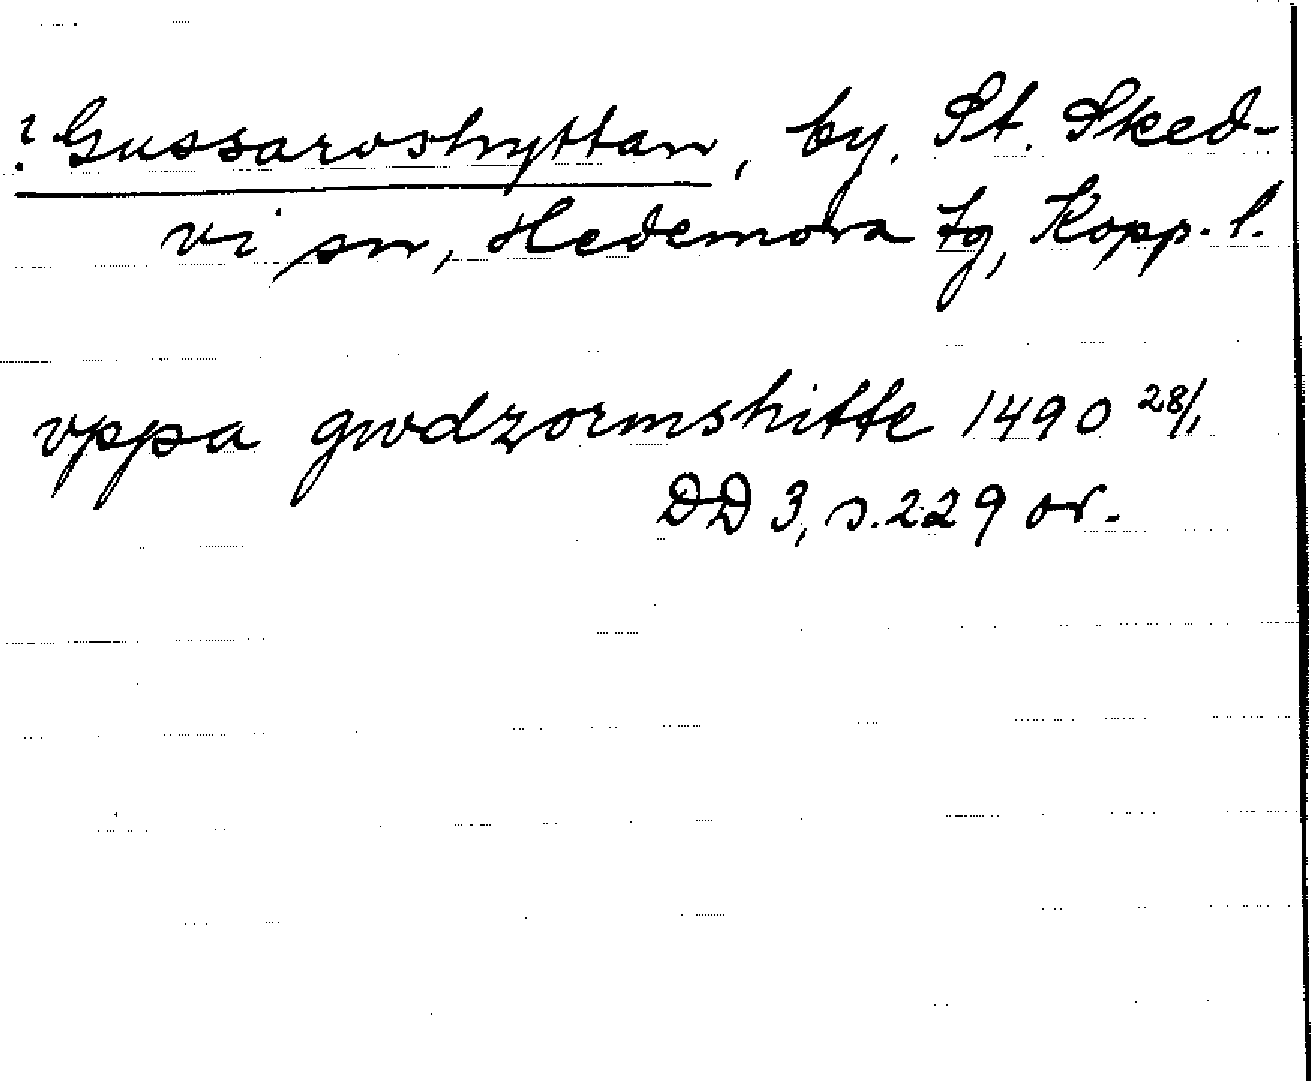 ? Gussarvshyttan, by, St. Sked-
vi sn, Hedemora tg, Kopp. l.
vppa gwdzormshitte 1490 28/1
DD 3, s. 229 or.